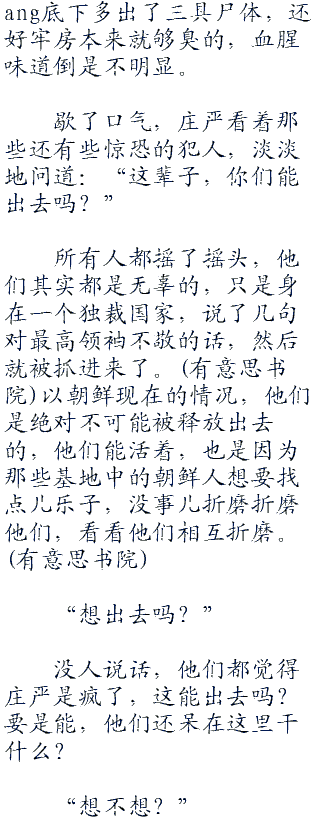 ang底下多出了三具尸体，还
好牢房本来就够臭的，血腥
味道倒是不明显。
歇了口气，庄严看着那
些还有些惊恐的犯人，淡淡
地问道：“这辈子，你们能
出去吗？”
所有人都摇了摇头，他
们其实都是无辜的，只是身
在一个独裁国家，说了几句
对最高领袖不敬的话，然后
就被抓进来了。(有意思书
院)以朝鲜现在的情况，他们
是绝对不可能被释放出去
的，他们能活着，也是因为
那些基地中的朝鲜人想要找
点儿乐子，没事儿折磨折磨
他们，看看他们相互折磨。
(有意思书院)
“想出去吗？”
没人说话，他们都觉得
庄严是疯了，这能出去吗？
要是能，他们还呆在这里干
什么？
“想不想？”